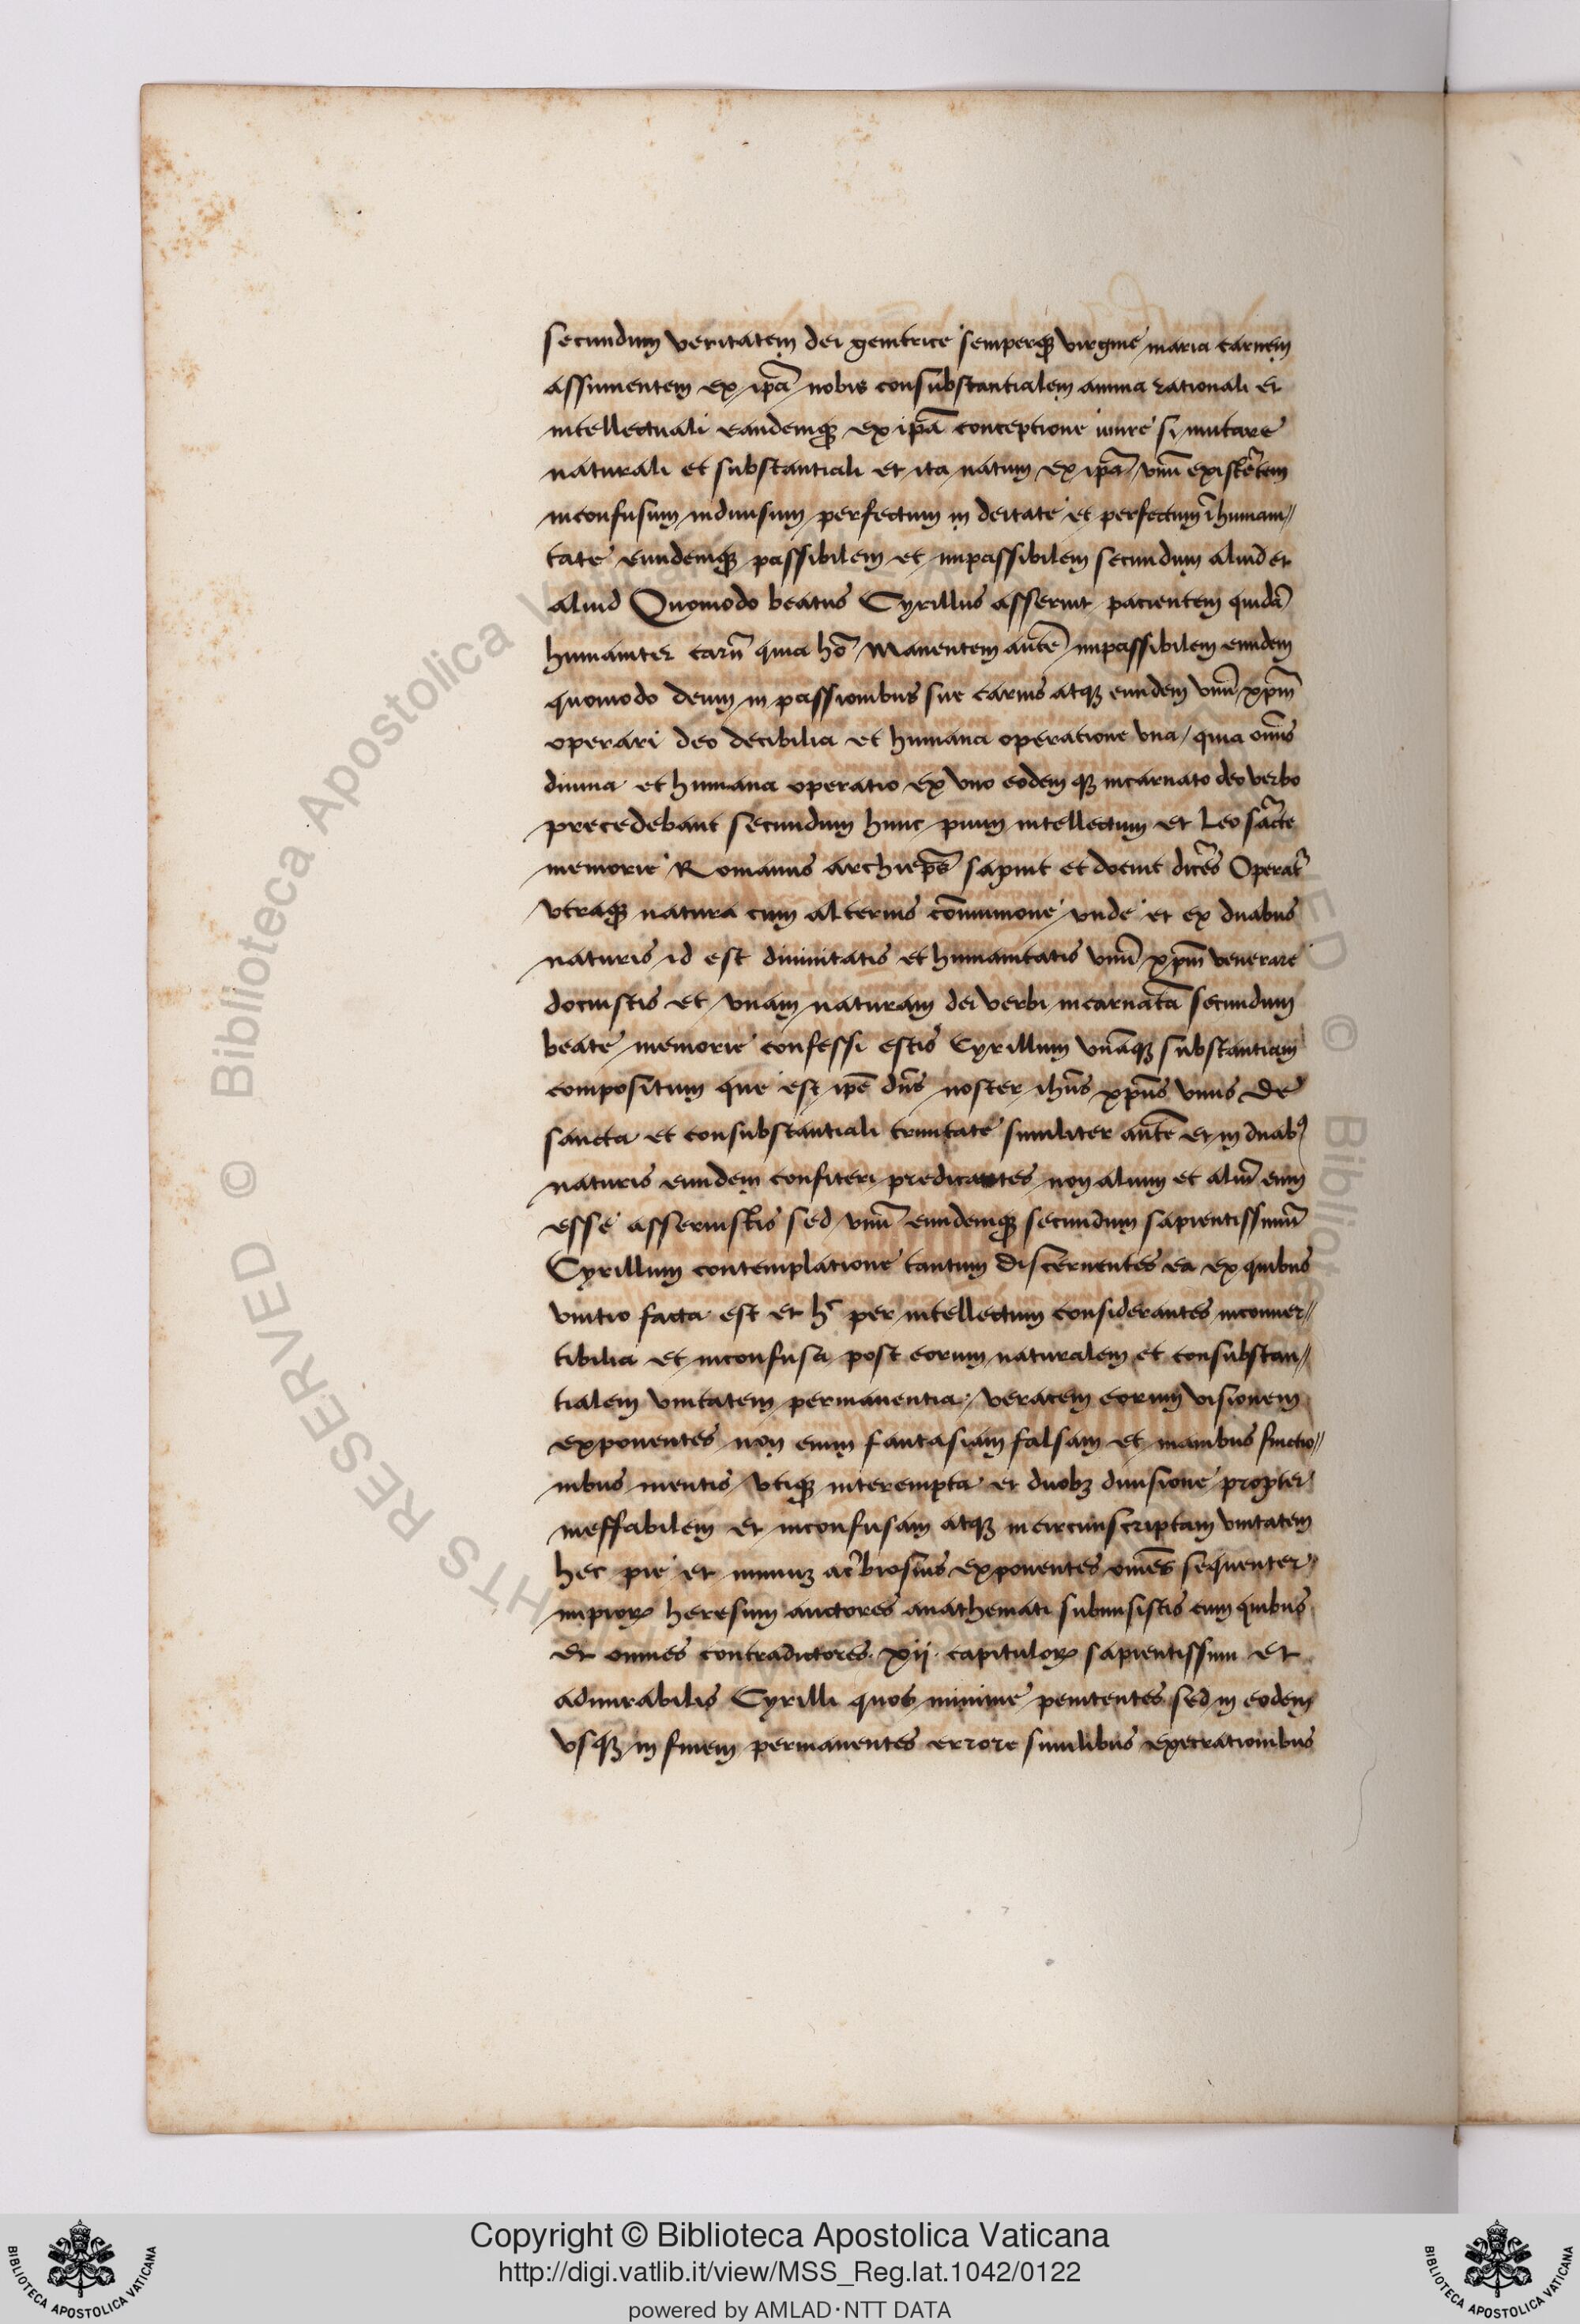 secundum veritatem dei genitrice semperq virgine maria carnem
assumentem ex ip̄a nobis consubstantialem anima rationali et
intellectuali eandemq ex ip̄a conceptione
naturali et substantiali et ita natum ex ip̄a vnū existētem
inconfusum indiuisum perfectum in deitate et perfectum ī humani//
tate eundemq passibilem et impassibilem secundum aliud et
aliud Quomodo beatus Cyrillus asseruit pacientem quidā
humaniter carñ quia hō Manentem autē impassibilem eundem
quomodo deum in passionibus sue carnis atqz eundem vnū xp̄m
operari deo decibilia et humana operatione vna / quia omīs
diuina et humana operatio ex vno eodem qz incarnato deo verbo
precedebant secundum hunc pium intellectum et Leo sācte
memorie Romanus archiep̄s sapuit et docuit dicēs Operat̄
vtraq natura cum alterius cōmunione vnde et ex duabus
naturis id est diuinitatis et humanitatis vnū xp̄m venerare
docuistis et vnam naturam dei verbi incarnatā secundum
beate memorie confessi estis Cyrillum vnāqz substantiam
compositum que est ip̄e dn̄s noster ihūs xp̄us vnus de
sancta et consubstantiali trinitate similiter autē et in duabꝰ
naturis eundem confiteri predicantes non alium et aliū eum
esse asseruistis sed vnū eundemq secundum sapientissimū
Cyrillum contemplatione tantum discernentes ea ex quibus
vnitio facta est et hͨ per intellectum considerantes inconuer//
tibilia et inconfusa post eorum naturalem et consubstan//
tialem vnitatem permanentia / veracem eorum visionem
exponentes non enim fantasiam falsam et inanibus finctio//
nibus mentis vtiq interempta et duobz diuisione propter
ineffabilem et inconfusam atqz incircunscriptam vnitatem
hec pie et exponentes omēs sequenter
impiorꝝ heresum auctores anathemati submisistis cum quibus
et omnes contradictores xij capitulorꝝ sapientissimi et
admirabilis Cyrilli quos minime penitentes sed in eodem
vsqz in finem permanentes errore similibus execrationibus
Copyright © Biblioteca Apostolica Vaticana
http://digi.vatlib.it/view/MSS_Reg.lat.1042/0122
powered by AMLAD·NTT DATA